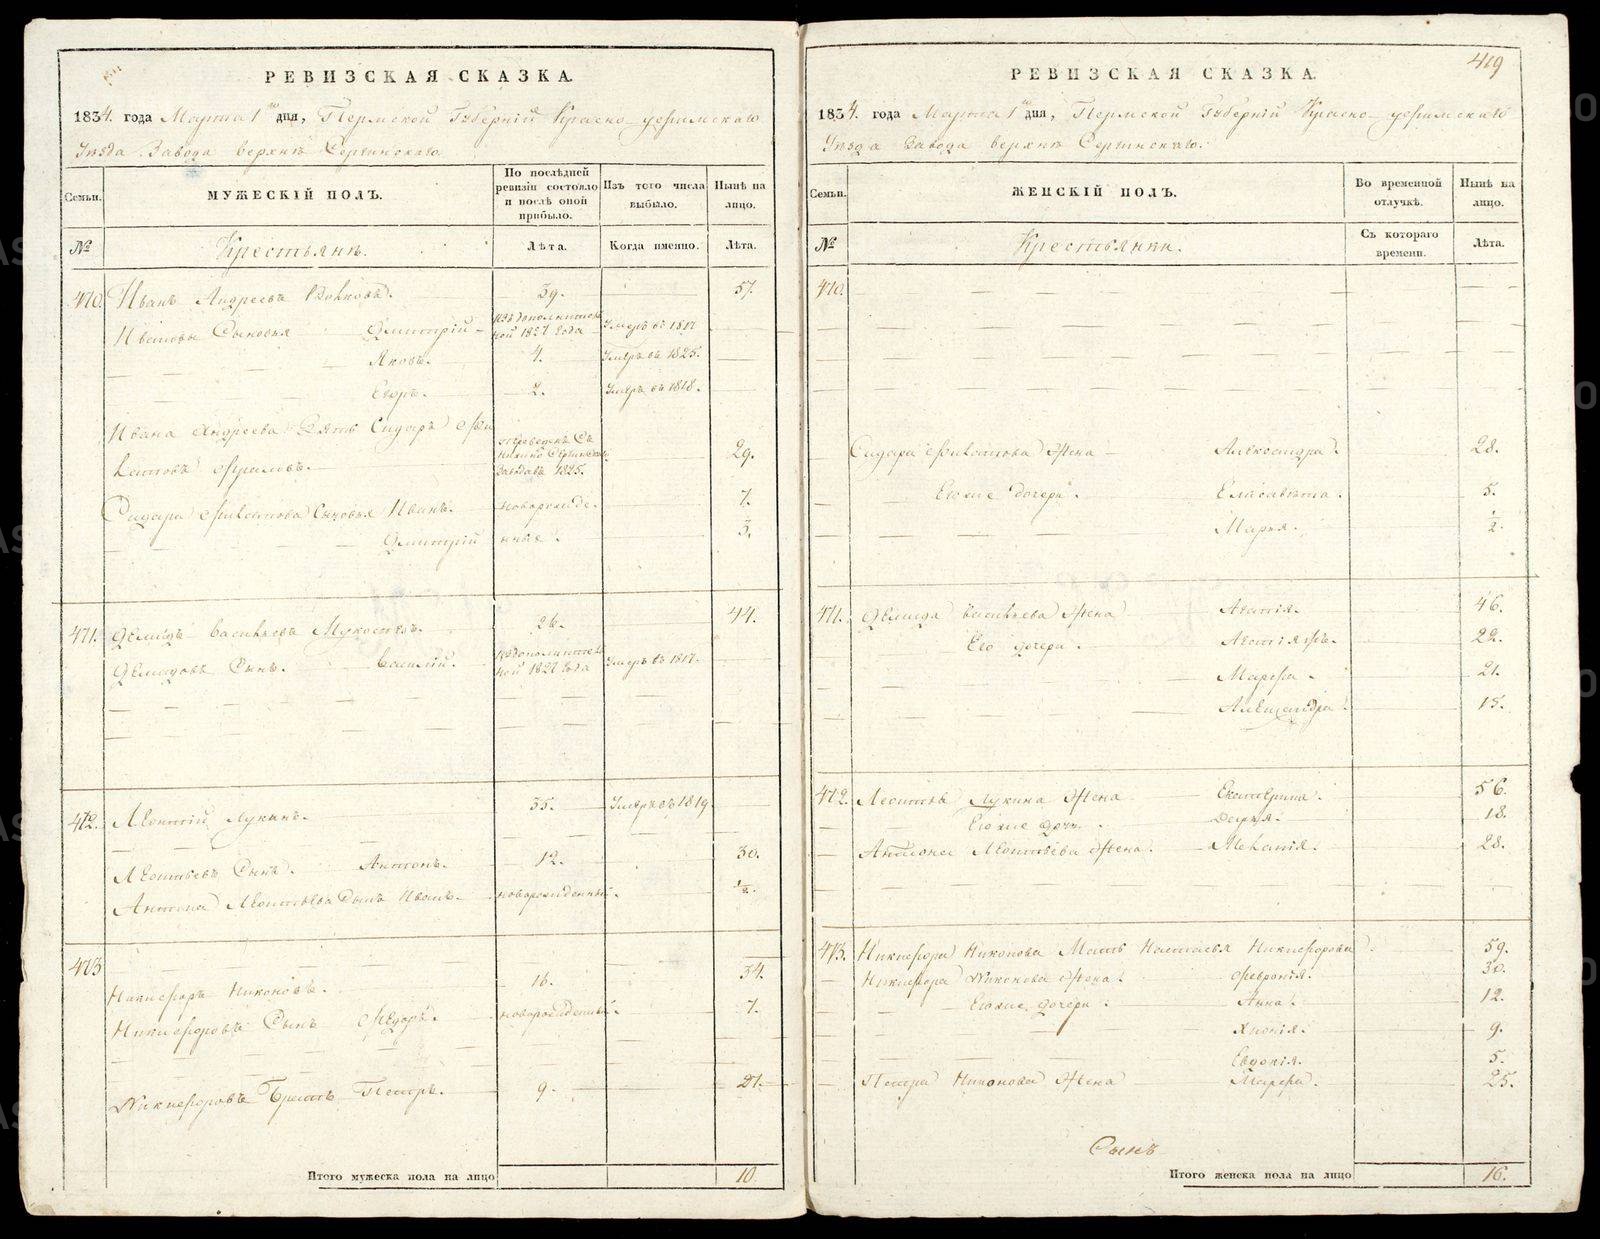 РЕВИЗСКАЯ СКАЗКА.
1834. года Марта 1го дня, Пермской Губернiи Красно-уфимскаго
Уѣзда Завода верхнѣ Сергинскаго
Семьи.
МУЖЕСКIЙ ПОЛЪ.
По послѣдней ревизiи состояло и послѣ оной прибыло.
Изъ того числа выбыло.
Нынѣ на лицо.
№
Крестьянѣ.
Лѣта.
Когда именно.
Лѣта.
470. Иванъ Андреевъ Волковъ. 39. 57.
Ивановы Сыновья Дмитрiй изъ дополнитель
ной 1827 года Умеръ въ 1817
Яковъ. 4. Умеръ въ 1825.
Егоръ. 2. Умеръ въ 1818.
Ивана Андреева Зять Сидоръ
переведенъ съ
Нижно Сергинскаго 29.
Заводавъ 1825.
Сидора Сыновья Иванъ. новорожде- 7.
Дмитрiй нные. 3.
471. Демидъ Васильевъ 26. 44.
Демидовъ Сынъ. Василiй. изъ дополнитель
ной 1827 года Умеръ въ 1817.
472. Леонтiй Лукинъ. 35. Умеръ въ 1819.
Леонтьевъ Сынъ. Антонъ. 12. 30.
Антона Леонтьева Сынъ Иванъ. новорожденный. ½.
473 Никифоръ Никоновъ. 16. 34.
Никифоровъ Сынъ Федоръ. новорожденный. 7.
Никифоровъ Братъ Петръ. 9. 27.
Итого мужеска пола на лицо 10.
419
РЕВИЗСКАЯ СКАЗКА.
1834. года Марта 1го дня, Пермской Губернiй Красно-уфимскаго
Уѣзда Завода верхнѣ Сергинскаго.
Семьи.
ЖЕНСКIЙ ПОЛЪ.
Во временной отлучкѣ.
Нынѣ на лицо.
№
Крестьянки.
Съ котораго времени.
Лѣта.
470.
Сидора Жена Александра. 28.
Егоже дочери. Елисавета. 5.
Марья. ½.
471. Демида Васильева Жена 46.
Его дочери. 22.
Марфа. 21.
Александра. 15.
472. Леонтья Лукина Жена Екатерина. 56.
Егоже дочь. Дарья. 18.
Антона Леонтьева Жена. Меланiя. 28.
473. Никифора Никонова Мать Настасья Никифорова. 59.
Никифора Никонова Жена. Февронiя. 30.
Егоже дочери. Анна. 12.
9.
Евдокiя. 5.
Петра Никонова Жена Марфа. 25.
Сынъ
Итого женска пола на лицо 16.